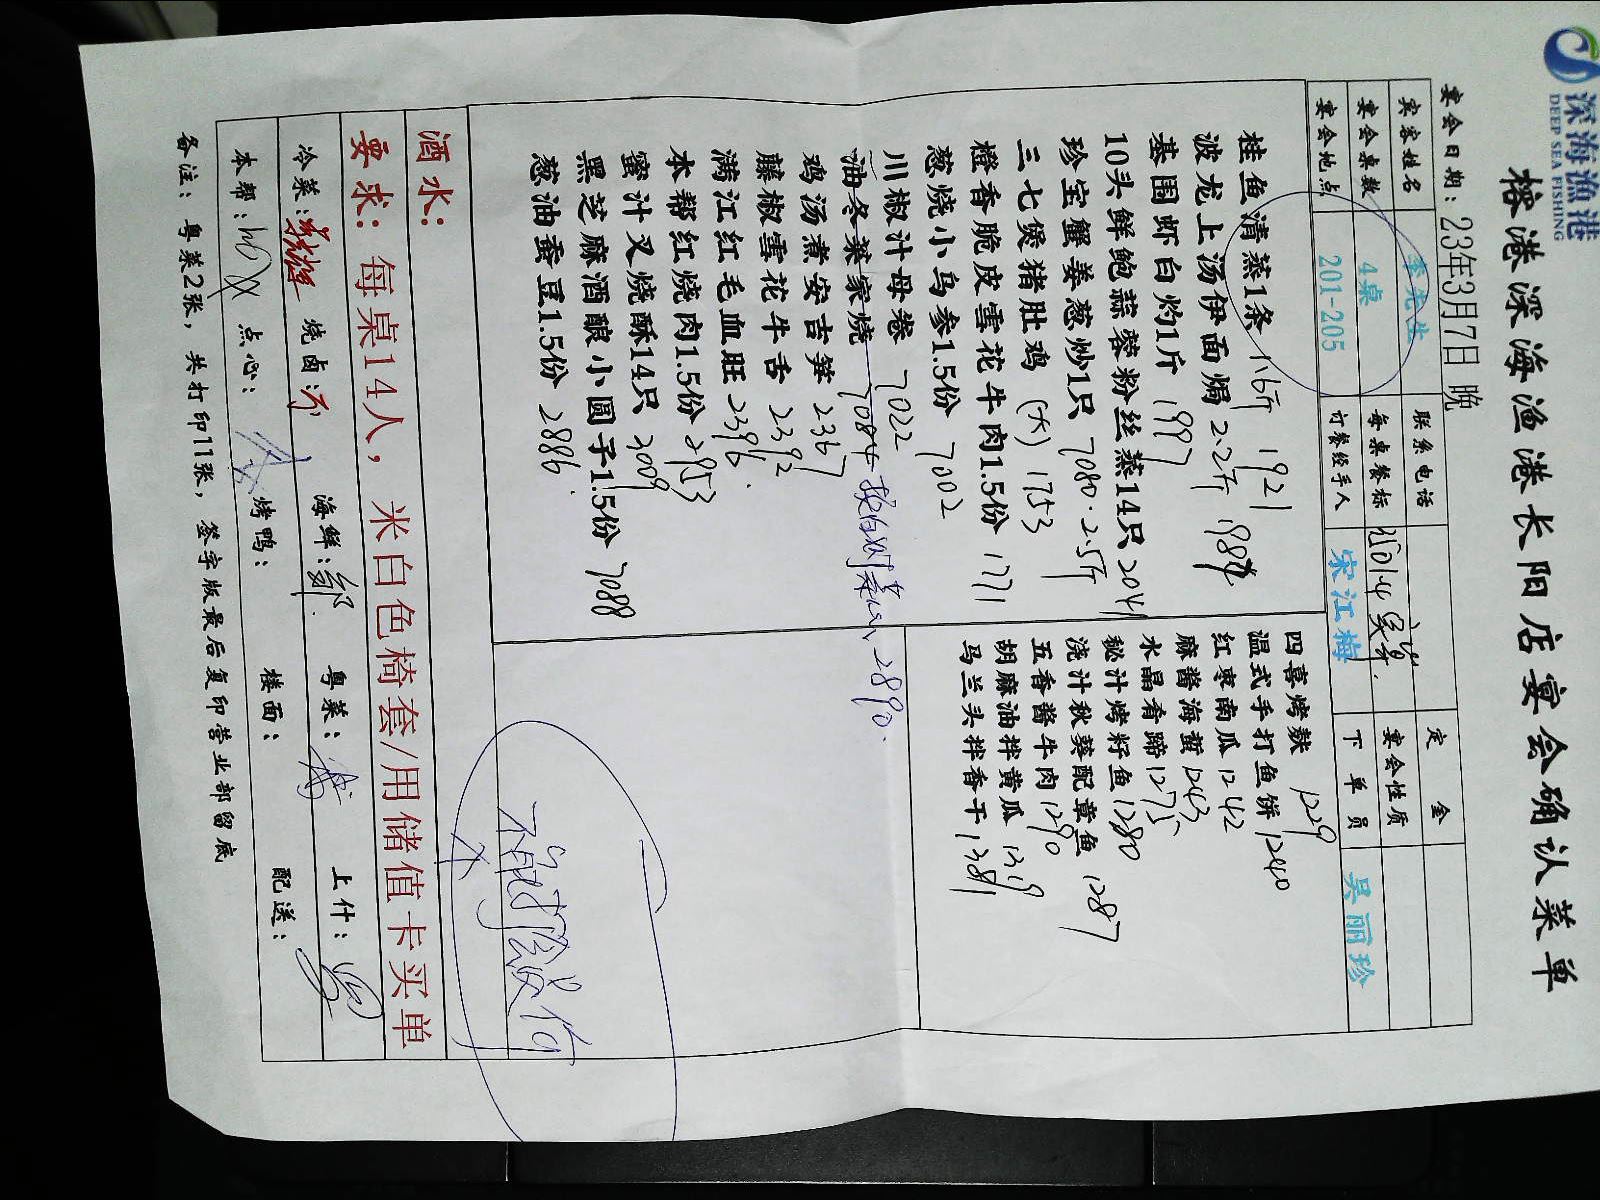 深海渔港
DEEP SEA FISHING
榕港深海渔港长阳店宴会确认菜单
宴会日期：23年3月7日 晚
宾客姓名 李先生 联系电话 定金
宴会桌数 4桌 每桌餐标 宴会性质
宴会地点 201-205 订餐经手人 宋江梅 下单员 吴丽珍
桂鱼清蒸1条 1.6斤 1921
波龙上汤伊面焗 2.2斤 1984
基围虾白灼1斤 1997
10头鲜鲍蒜蓉粉丝蒸14只 2041
珍宝蟹姜葱炒1只 7080. 2.5斤
三七煲猪肚鸡 (大) 1753
橙香脆皮雪花牛肉1.5份 1771
葱烧小乌参1.5份 7002
川椒汁母卷 7022
油冬菜家烧 7084 2890.
鸡汤煮安吉笋 2367
藤椒雪花牛舌 2392
满江红毛血旺 2396.
本帮红烧肉1.5份 2953
蜜汁叉烧酥14只 3009
黑芝麻酒酿小圆子1.5份 7088
葱油蚕豆1.5份 2886.
四喜烤麸 1229
温式手打鱼饼 1240
红枣南瓜 1242
麻酱海蜇 1243
水晶肴蹄 1275
秘汁烤籽鱼 1280
浇汁秋葵配章鱼 1287
五香酱牛肉 1290
胡麻油拌黄瓜 1319
马兰头拌香干 1381
酒水：
要求：每桌14人，米白色椅套/用储值卡买单
冷菜： 烧卤 海鲜： 粤菜： 上什：
本帮： 点心： 烤鸭： 楼面： 配送：
备注：粤菜2张，共打印11张，签字版最后复印营业部留底